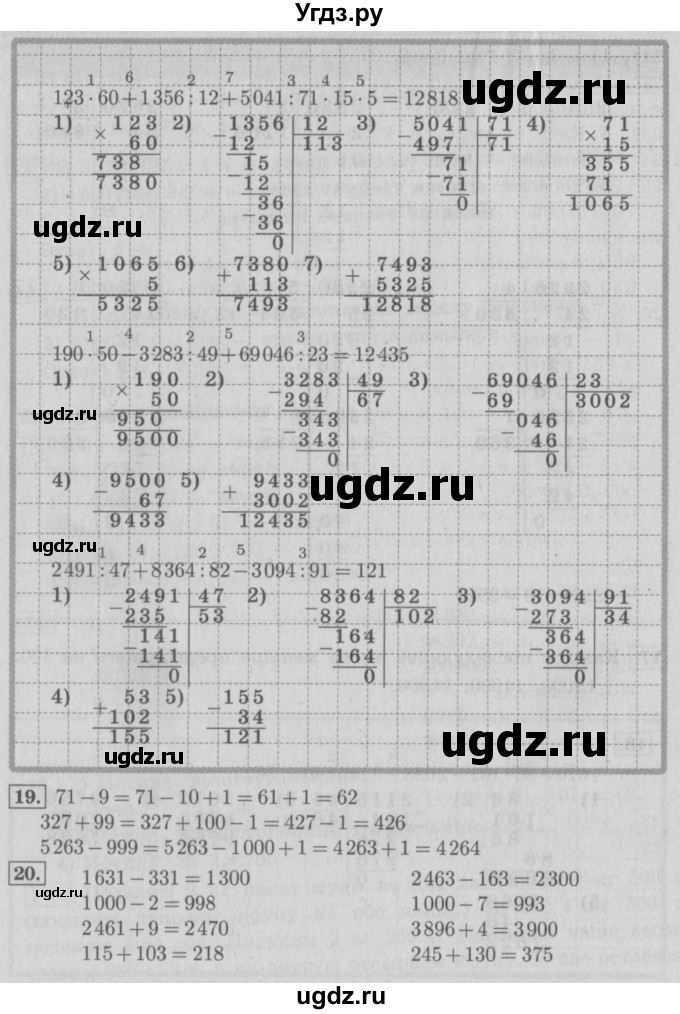 Угдз.ру
1 6 2 7 3 4 5
123 · 60 + 1356 : 12 + 5041 : 71 · 15 · 5 = 12818
ugdz.ru
1) × 123 2) − 1356 | 12 3) − 5041 | 71 4) × 71
60 12 | 113 497 | 71 15
738 − 15 − 71 355
7380 12 71 71
− 36 0 1065
36
0
ugdz.ru
ugdz.ru
5) × 1065 6) + 7380 7) + 7493
5 113 5325
5325 7493 12818
1 4 2 5 3
190 · 50 − 3283 : 49 + 69046 : 23 = 12435
1) × 190 2) − 3283 | 49 3) − 69046 | 23
50 294 | 67 69 | 3002
950 − 343 − 046
9500 343 46
0 0
ugdz.ru
4) − 9500 5) + 9433
67 3002
9433 12435
ugdz.ru
ugdz.ru
1 4 2 5 3
2491 : 47 + 8364 : 82 − 3094 : 91 = 121
1) − 2491 | 47 2) − 8364 | 82 3) − 3094 | 91
235 | 53 82 | 102 273 | 34
− 141 − 164 − 364
141 164 364
0 0 0
4) + 53 5) − 155
102 34
155 121
ugdz.ru
ugdz.ru
19. 71 − 9 = 71 − 10 + 1 = 61 + 1 = 62
327 + 99 = 327 + 100 − 1 = 427 − 1 = 426
5263 − 999 = 5263 − 1000 + 1 = 4263 + 1 = 4264
20. 1631 − 331 = 1300 2463 − 163 = 2300
1000 − 2 = 998 1000 − 7 = 993
2461 + 9 = 2470 3896 + 4 = 3900
115 + 103 = 218 245 + 130 = 375
ugdz.ru
ugdz.ru